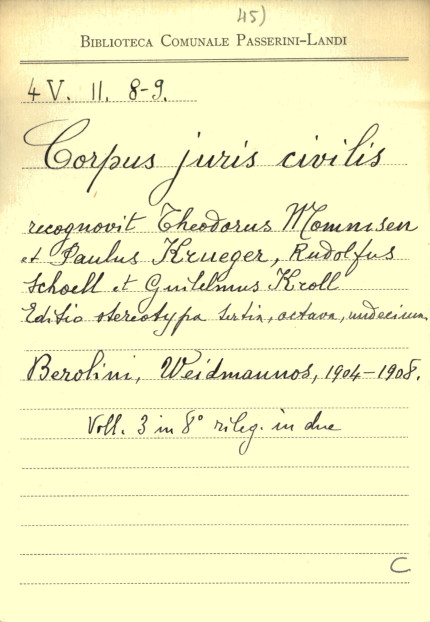 45)
BIBLIOTECA COMUNALE PASSERINI-LANDI
4 V. II. 8-9.
Corpus juris civilis
recognovit Theodorus Mommsen
et Paulus Krueger, Rudolfus
Schoell et Guilelmus Kroll
Editio stereotypa tertia, octava, undecima.
Berolini, Weidmannos, 1904-1908.
Voll. 3 in 8° rileg. in due
C